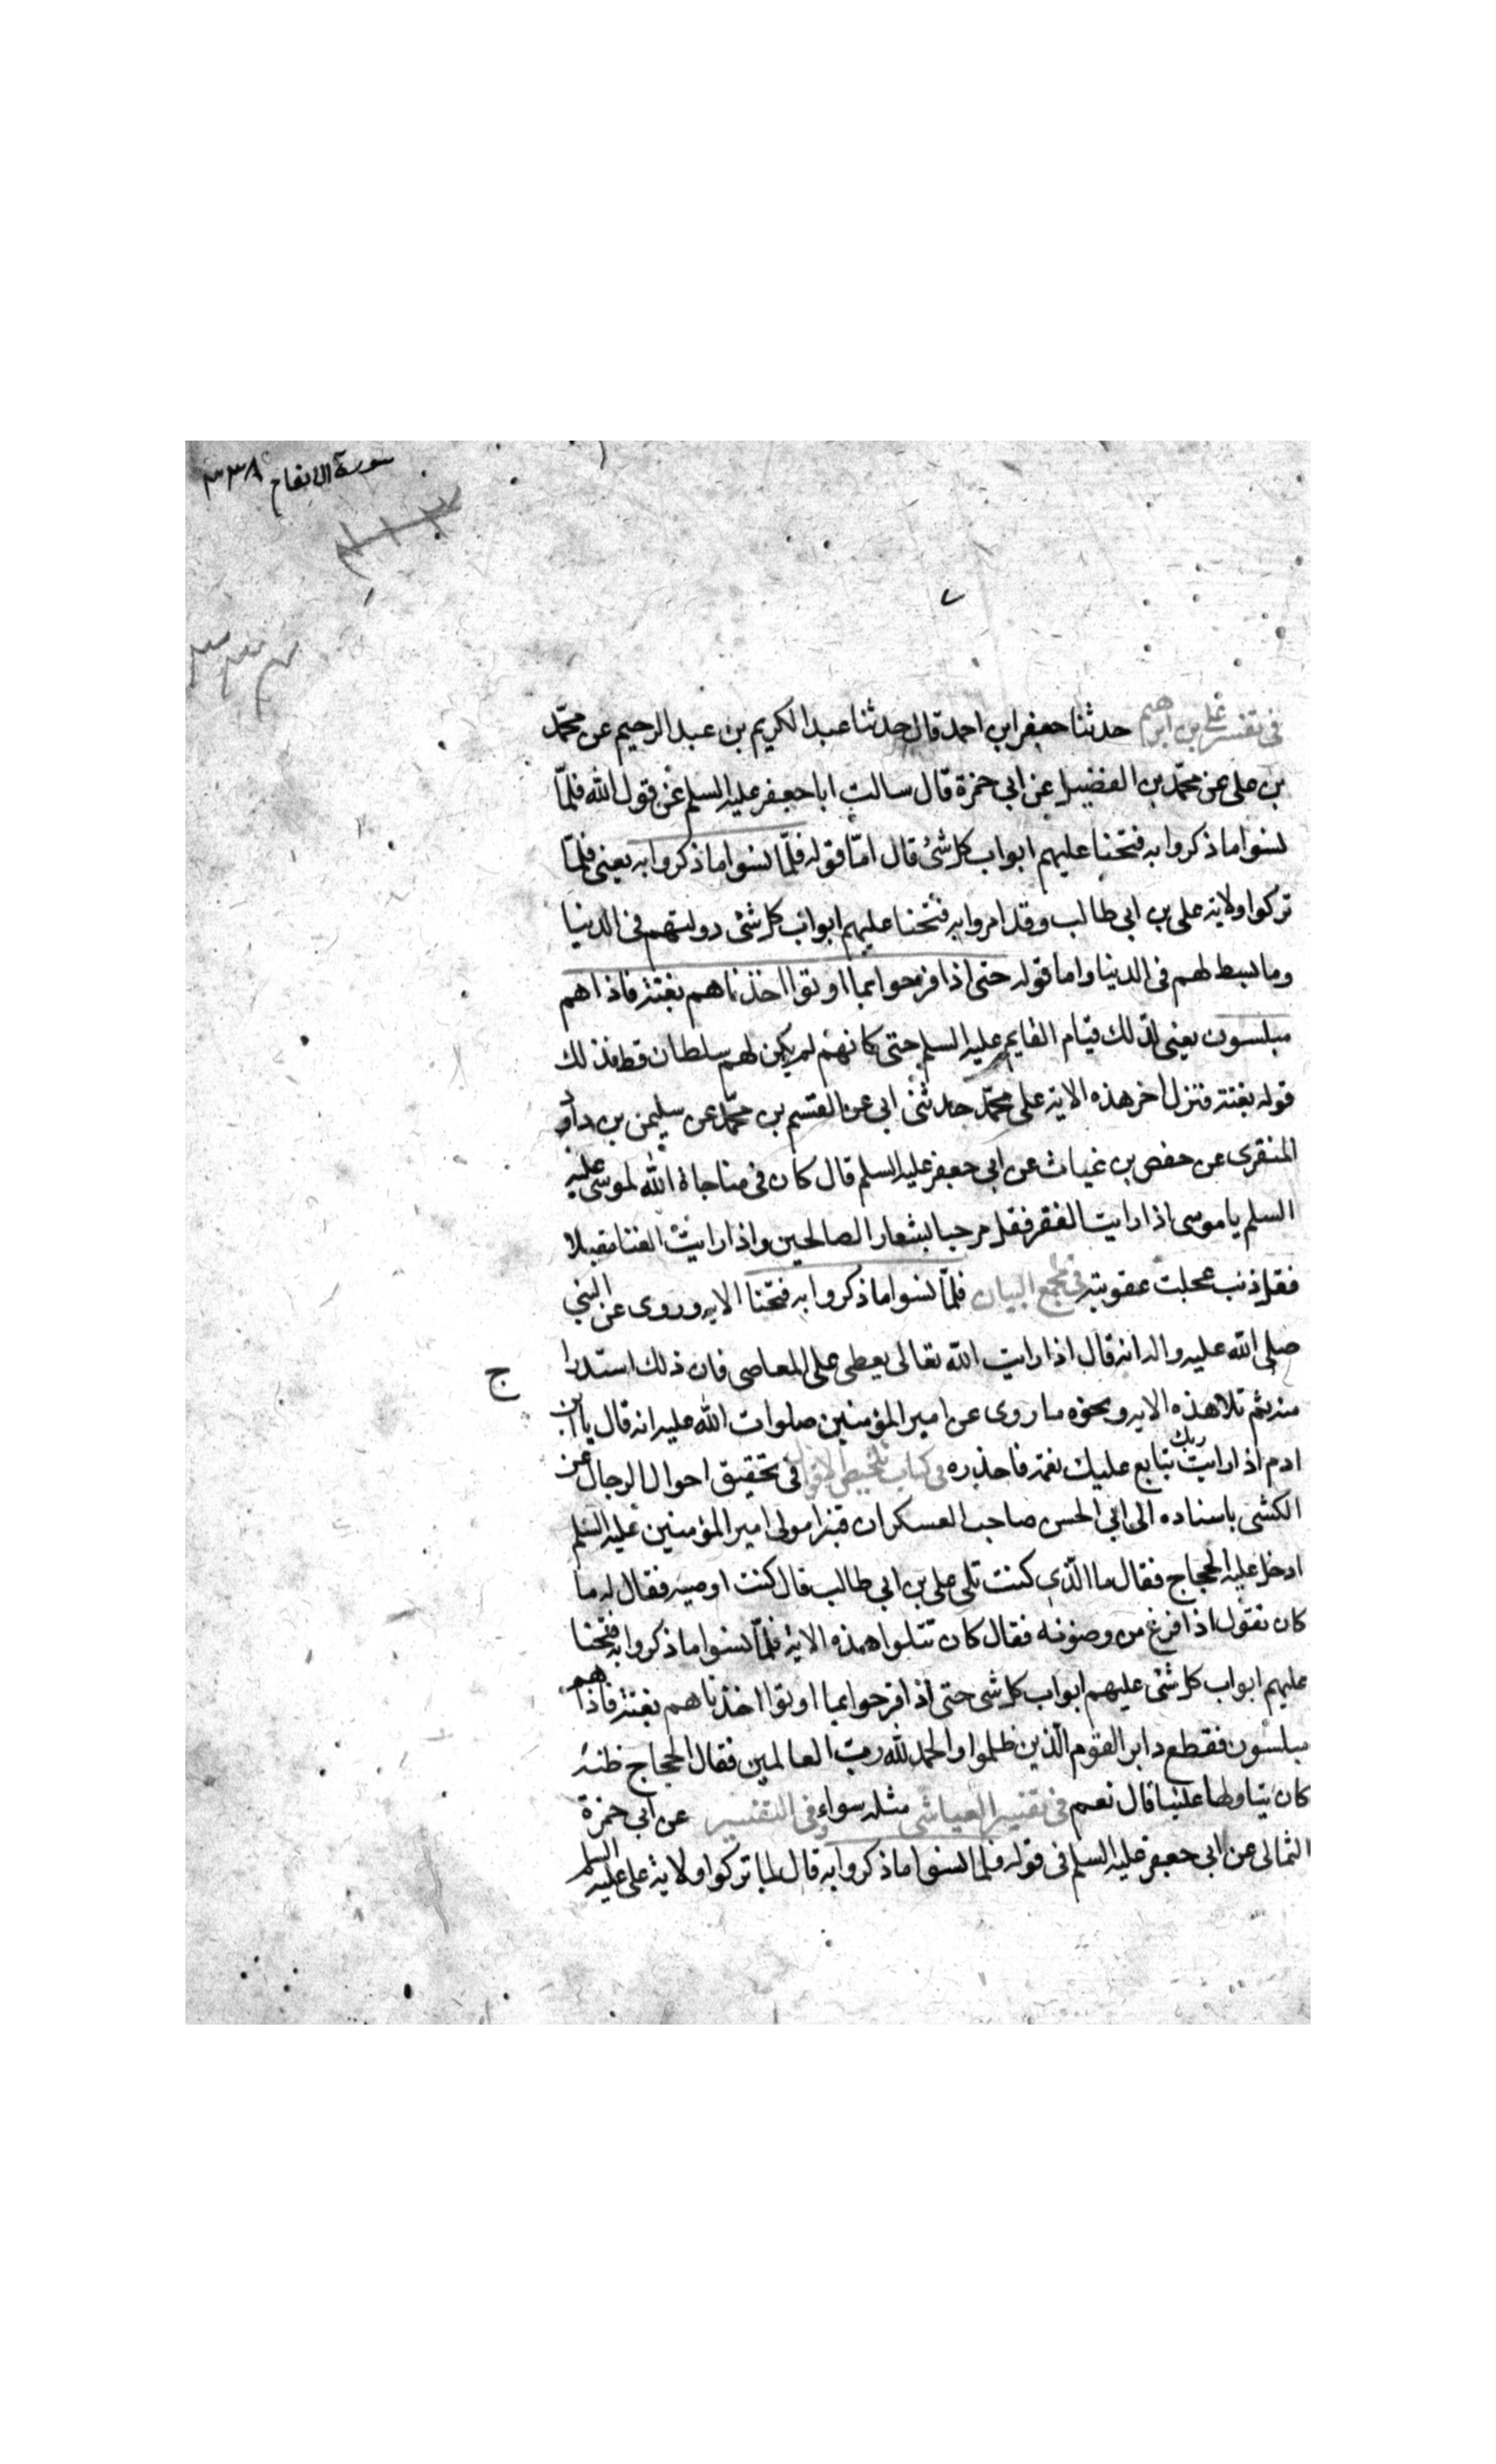 سورة الانعام ٣٣٨
فى تفسير على بن ابرهيم حدثنا جعفر ابن احمد قال حدثنا عبد الكريم بن عبد الرحيم عن محمّد
بن على عن محمّد بن الفضيل عن ابى حمزة قال سالت ابا جعفر عليه السلم عن قول الله فلمّا
نسوا ما ذكروا به فتحنا عليهم ابواب كل شئ قال امّا قوله فلمّا نسوا ما ذكروا به يعنى فلمّا
تركوا ولاية على بن ابى طالب وقد امروا به فتحنا عليهم ابواب كل شئ دولتهم فى الدنيا
وما بسط لهم فى الدنيا واما قوله حتى اذا فرحوا بما اوتوا اخذناهم بغتة فاذا هم
مبلسون يعنى لذلك قيام القايم عليه السلم حتى كانهم لم يكن لهم سلطان قط فذلك
قوله بغتة فنزل اخر هذه الاية على محمّد حدثنى ابى عن القسم بن محمّد عن سليمن بن داود
المنقرى عن حفص بن غياث عن ابى جعفر عليه السلم قال كان فى مناجاة الله لموسى عليه
السلم يا موسى اذا رايت الفقر فقل مرحبا بشعار الصالحين واذا رايت الغنا مقبلا
فقل ذنب عجلت عقوبته فى مجمع البيان فلمّا نسوا ما ذكروا به فتحنا الايه وروى عن النبى
صلى الله عليه واله انه قال اذا رايت الله تعالى يعطى على المعاصى فان ذلك استدرا
ج
منه ثم تلا هذه الايه ونحوه ما روى عن امير المؤمنين صلوات الله عليه انه قال يا ابن
ادم اذا رايت ربك تتابع عليك نعمه فاحذره فى كتاب تلخيص الاقوال فى تحقيق احوال الرجال عن
الكشى باسناده الى ابى الحسن صاحب العسكر ان قنبرا مولى امير المؤمنين عليه السلم
ادخل عليه الحجاج فقال ما الّذى كنت تلى على بن ابى طالب قال كنت اوضيه فقال له ما
كان نقول اذا فرغ من وضوئه فقال كان تتلوا هذه الاية فلمّا نسوا ما ذكروا به فتحنا
عليهم ابواب كل شئ عليهم ابواب كل شى حتى اذا فرحوا بما اوتوا اخذناهم بغتة فاذا هم
مبلسون فقطع دابر القوم الّذين ظلموا والحمد لله رب العالمين فقال الحجاج ظنه
كان يتاولها علينا قال نعم فى تفسير العياشى مثله سواء وفى التفسير عن ابى حمزة
الثمالى عن ابى جعفر عليه السلم فى قوله فلما نسوا ما ذكروا به قال لما تركوا ولاية على عليه السلم